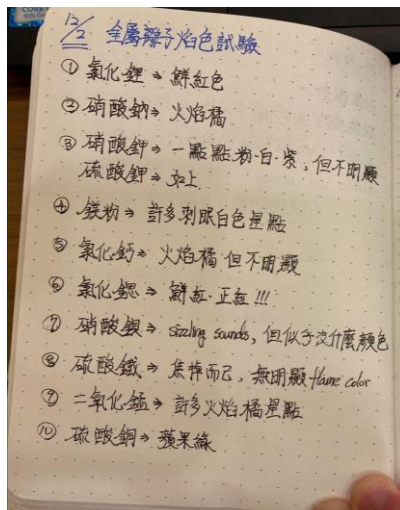 12/2 金屬離子焰色試驗
① 氯化鋰 → 鮮紅色
② 硝酸鈉 → 火焰橘
③ 硝酸鉀 → 一點點粉·白·紫，但不明顯
硫酸鉀 → 如上
④ 鎂粉 → 許多刺眼白色星點
⑤ 氯化鈣 → 火焰橘 但不明顯
⑥ 氯化鍶 → 鮮紅·正紅!!!
⑦ 硝酸鋇 → sizzling sounds, 但似乎沒什麼顏色
⑧ 硫酸鐵 → 焦掉而已，無明顯 flame color
⑨ 二氧化錳 → 許多火焰橘星點
⑩ 硫酸銅 → 蘋果綠